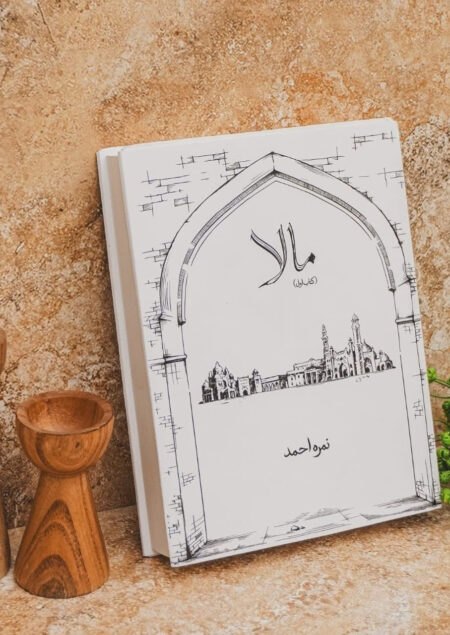 مالا
(کتاب اول)
نمرہ احمد